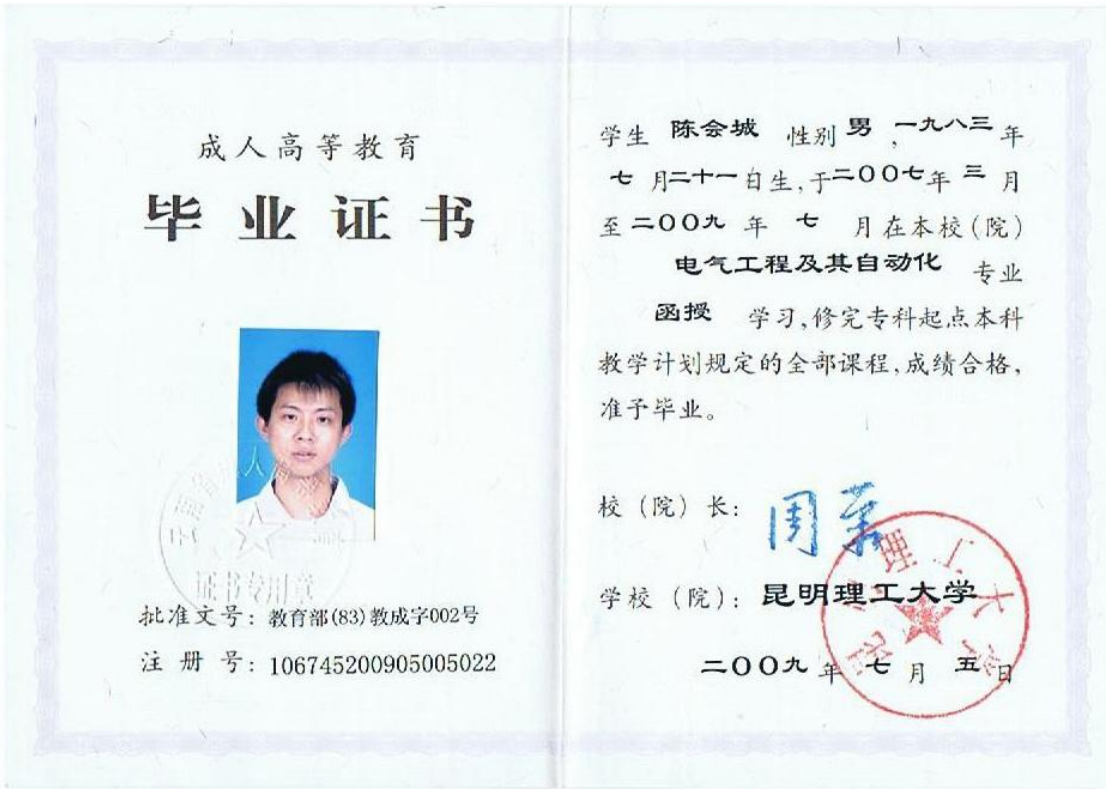 成人高等教育
毕业证书
证书专用章
批准文号：教育部(83)教成字002号
注册号：106745200905005022
学生 陈会城 性别 男，一九八三年
七月二十一日生，于二〇〇七年三月
至二〇〇九年七月在本校（院）
电气工程及其自动化 专业
函授 学习，修完专科起点本科
教学计划规定的全部课程，成绩合格，
准予毕业。
校（院）长：周荣
学校（院）：昆明理工大学
二〇〇九年七月五日